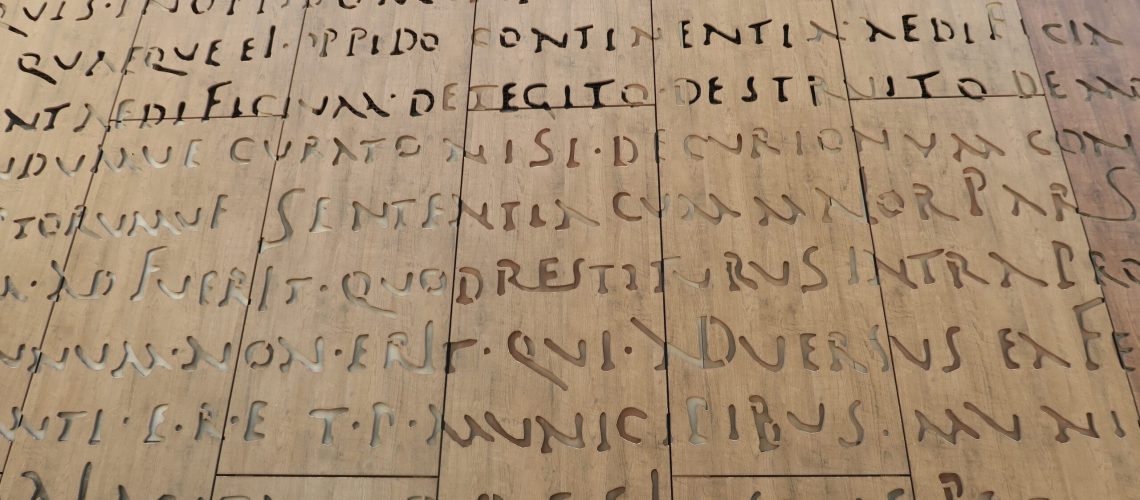 QUIS · IN OPPIDO
QUAEQUE EI · OPPIDO CONTINENTIA · AEDIFICIA
NT AEDIFICIUM · DETEGITO · DESTRUITO DEMO
UDUMUE CURATO NISI · DECURIONUM CON
TORUMUE SENTENTIA CUM MAIOR PARS
M · AD FUERIT · QUOD RESTITURUS INTRA PRO
NUUM · NON · ERIT · QUI · ADUERSUS EA FE
NTI · E · R · E T · P · MUNICIPIBUS · MUNI